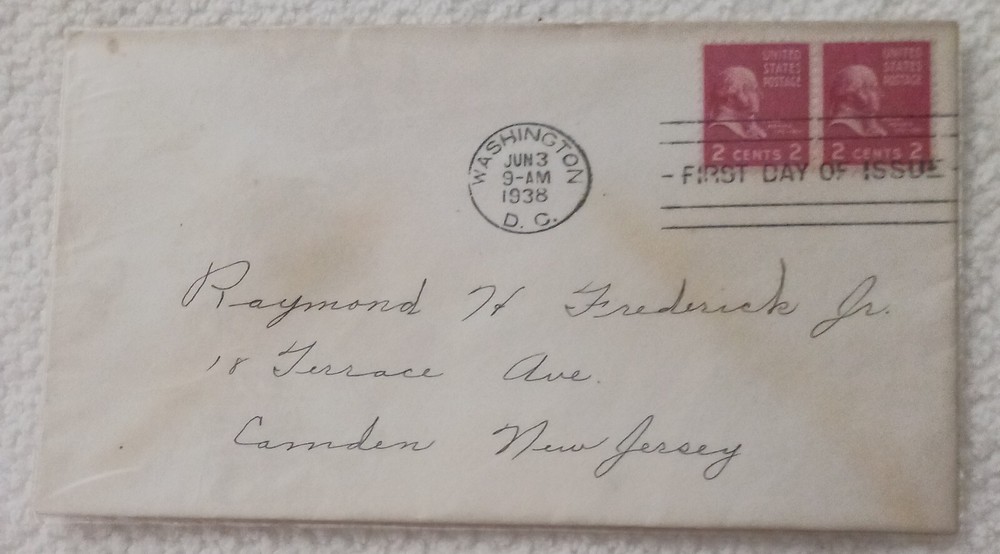 UNITED STATES POSTAGE
2 CENTS 2
UNITED STATES POSTAGE
2 CENTS 2
WASHINGTON
JUN 3
9-AM
1938
D. C.
FIRST DAY OF ISSUE
Raymond H Frederick Jr.
18 Terrace Ave.
Camden New Jersey